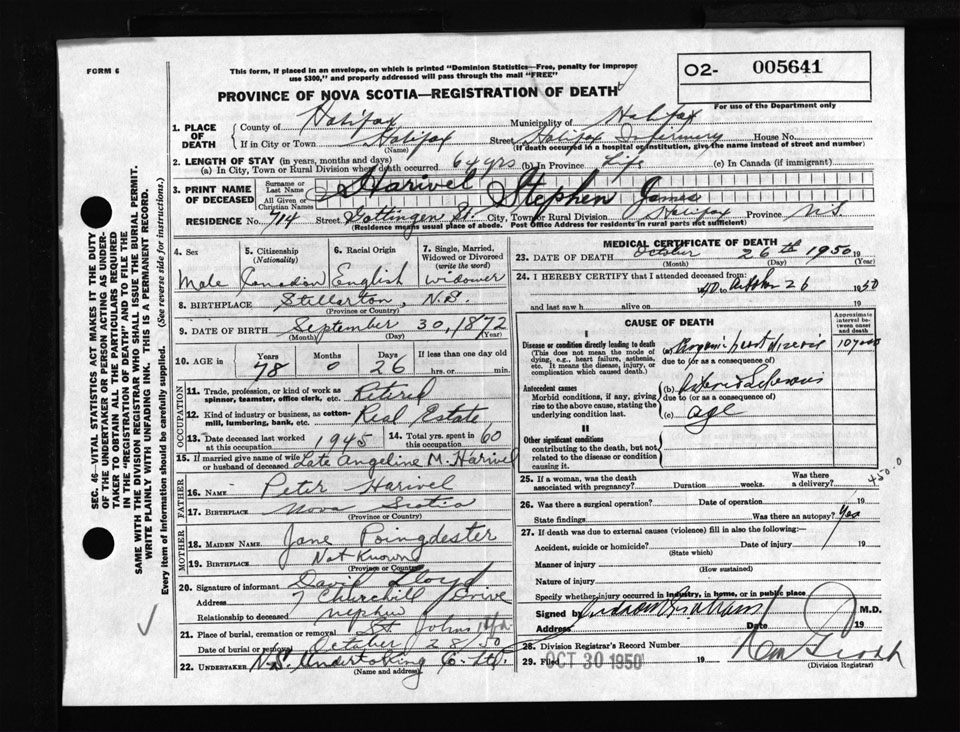 FORM 6
This form, if placed in an envelope, on which is printed "Dominion Statistics—Free, penalty for improper
use $300," and properly addressed will pass through the mail "FREE"
O2- 005641
PROVINCE OF NOVA SCOTIA—REGISTRATION OF DEATH
For use of the Department only
1. PLACE OF DEATH County of Halifax Municipality of Halifax
If in City or Town Halifax Street Halifax Infirmary House No.
(Name) (If death occurred in a hospital or institution, give the name instead of street and number)
2. LENGTH OF STAY (in years, months and days)
(a) In City, Town or Rural Division where death occurred 64 yrs (b) In Province Life (c) In Canada (if immigrant)
3. PRINT NAME OF DECEASED Surname or Last Name Harivel
All Given or Christian Names Stephen James
RESIDENCE No. 714 Street Gottingen St. City, Town or Rural Division Halifax Province N.S.
(Residence means usual place of abode. Post Office Address for residents in rural parts not sufficient)
4. Sex
Male
5. Citizenship (Nationality)
Canadian
6. Racial Origin
English
7. Single, Married, Widowed or Divorced (write the word)
Widower
8. BIRTHPLACE Stellarton, N.S.
(Province or Country)
9. DATE OF BIRTH September 30, 1872
(Month) (Day) (Year)
10. AGE in Years Months Days If less than one day old
78 0 26 hrs. or min.
OCCUPATION
11. Trade, profession, or kind of work as spinner, teamster, office clerk, etc. Retired
12. Kind of industry or business, as cotton-mill, lumbering, bank, etc. Real Estate
13. Date deceased last worked at this occupation 1945 14. Total yrs. spent in this occupation 60
15. If married give name of wife or husband of deceased Late Angeline M. Harivel
FATHER
16. NAME Peter Harivel
17. BIRTHPLACE Nova Scotia
(Province or Country)
MOTHER
18. MAIDEN NAME Jane Poingdester
19. BIRTHPLACE Not Known
(Province or Country)
20. Signature of informant David Lloyd
Address 7 Churchill Drive
Relationship to deceased nephew
21. Place of burial, cremation or removal St. Johns
Date of burial or removal October 28/50
22. UNDERTAKER N.S. Undertaking Co. Ltd.
(Name and address)
MEDICAL CERTIFICATE OF DEATH
23. DATE OF DEATH October 26th 1950 19
(Month) (Day) (Year)
24. I HEREBY CERTIFY that I attended deceased from
to 26 1950
and last saw h alive on 19
CAUSE OF DEATH
Approximate interval between onset and death
I
Disease or condition directly leading to death
(This does not mean the mode of dying, e.g., heart failure, asthenia, etc. It means the disease, injury, or complication which caused death.)
(a) heart disease
due to (or as a consequence of)
Antecedent causes
Morbid conditions, if any, giving rise to the above cause, stating the underlying condition last.
(b)
due to (or as a consequence of)
(c) age
II
Other significant conditions
contributing to the death, but not related to the disease or condition causing it.
25. If a woman, was the death associated with pregnancy? Duration weeks. Was there a delivery?
26. Was there a surgical operation? Date of operation 19
State findings Was there an autopsy? Yes
27. If death was due to external causes (violence) fill in also the following:—
Accident, suicide or homicide? Date of injury 19
(State which)
Manner of injury
(How sustained)
Nature of injury
Specify whether injury occurred in industry, in home, or in public place
Signed by M.D.
Address Date 19
28. Division Registrar's Record Number
29. Filed OCT 30 1950 19
(Division Registrar)
SEC. 46—VITAL STATISTICS ACT MAKES IT THE DUTY
OF THE UNDERTAKER OR PERSON ACTING AS UNDER-
TAKER TO OBTAIN ALL THE PARTICULARS REQUIRED
IN THE "REGISTRATION OF DEATH" AND TO FILE THE
SAME WITH THE DIVISION REGISTRAR WHO SHALL ISSUE THE BURIAL PERMIT.
WRITE PLAINLY WITH UNFADING INK. THIS IS A PERMANENT RECORD.
Every item of information should be carefully supplied. (See reverse side for instructions.)